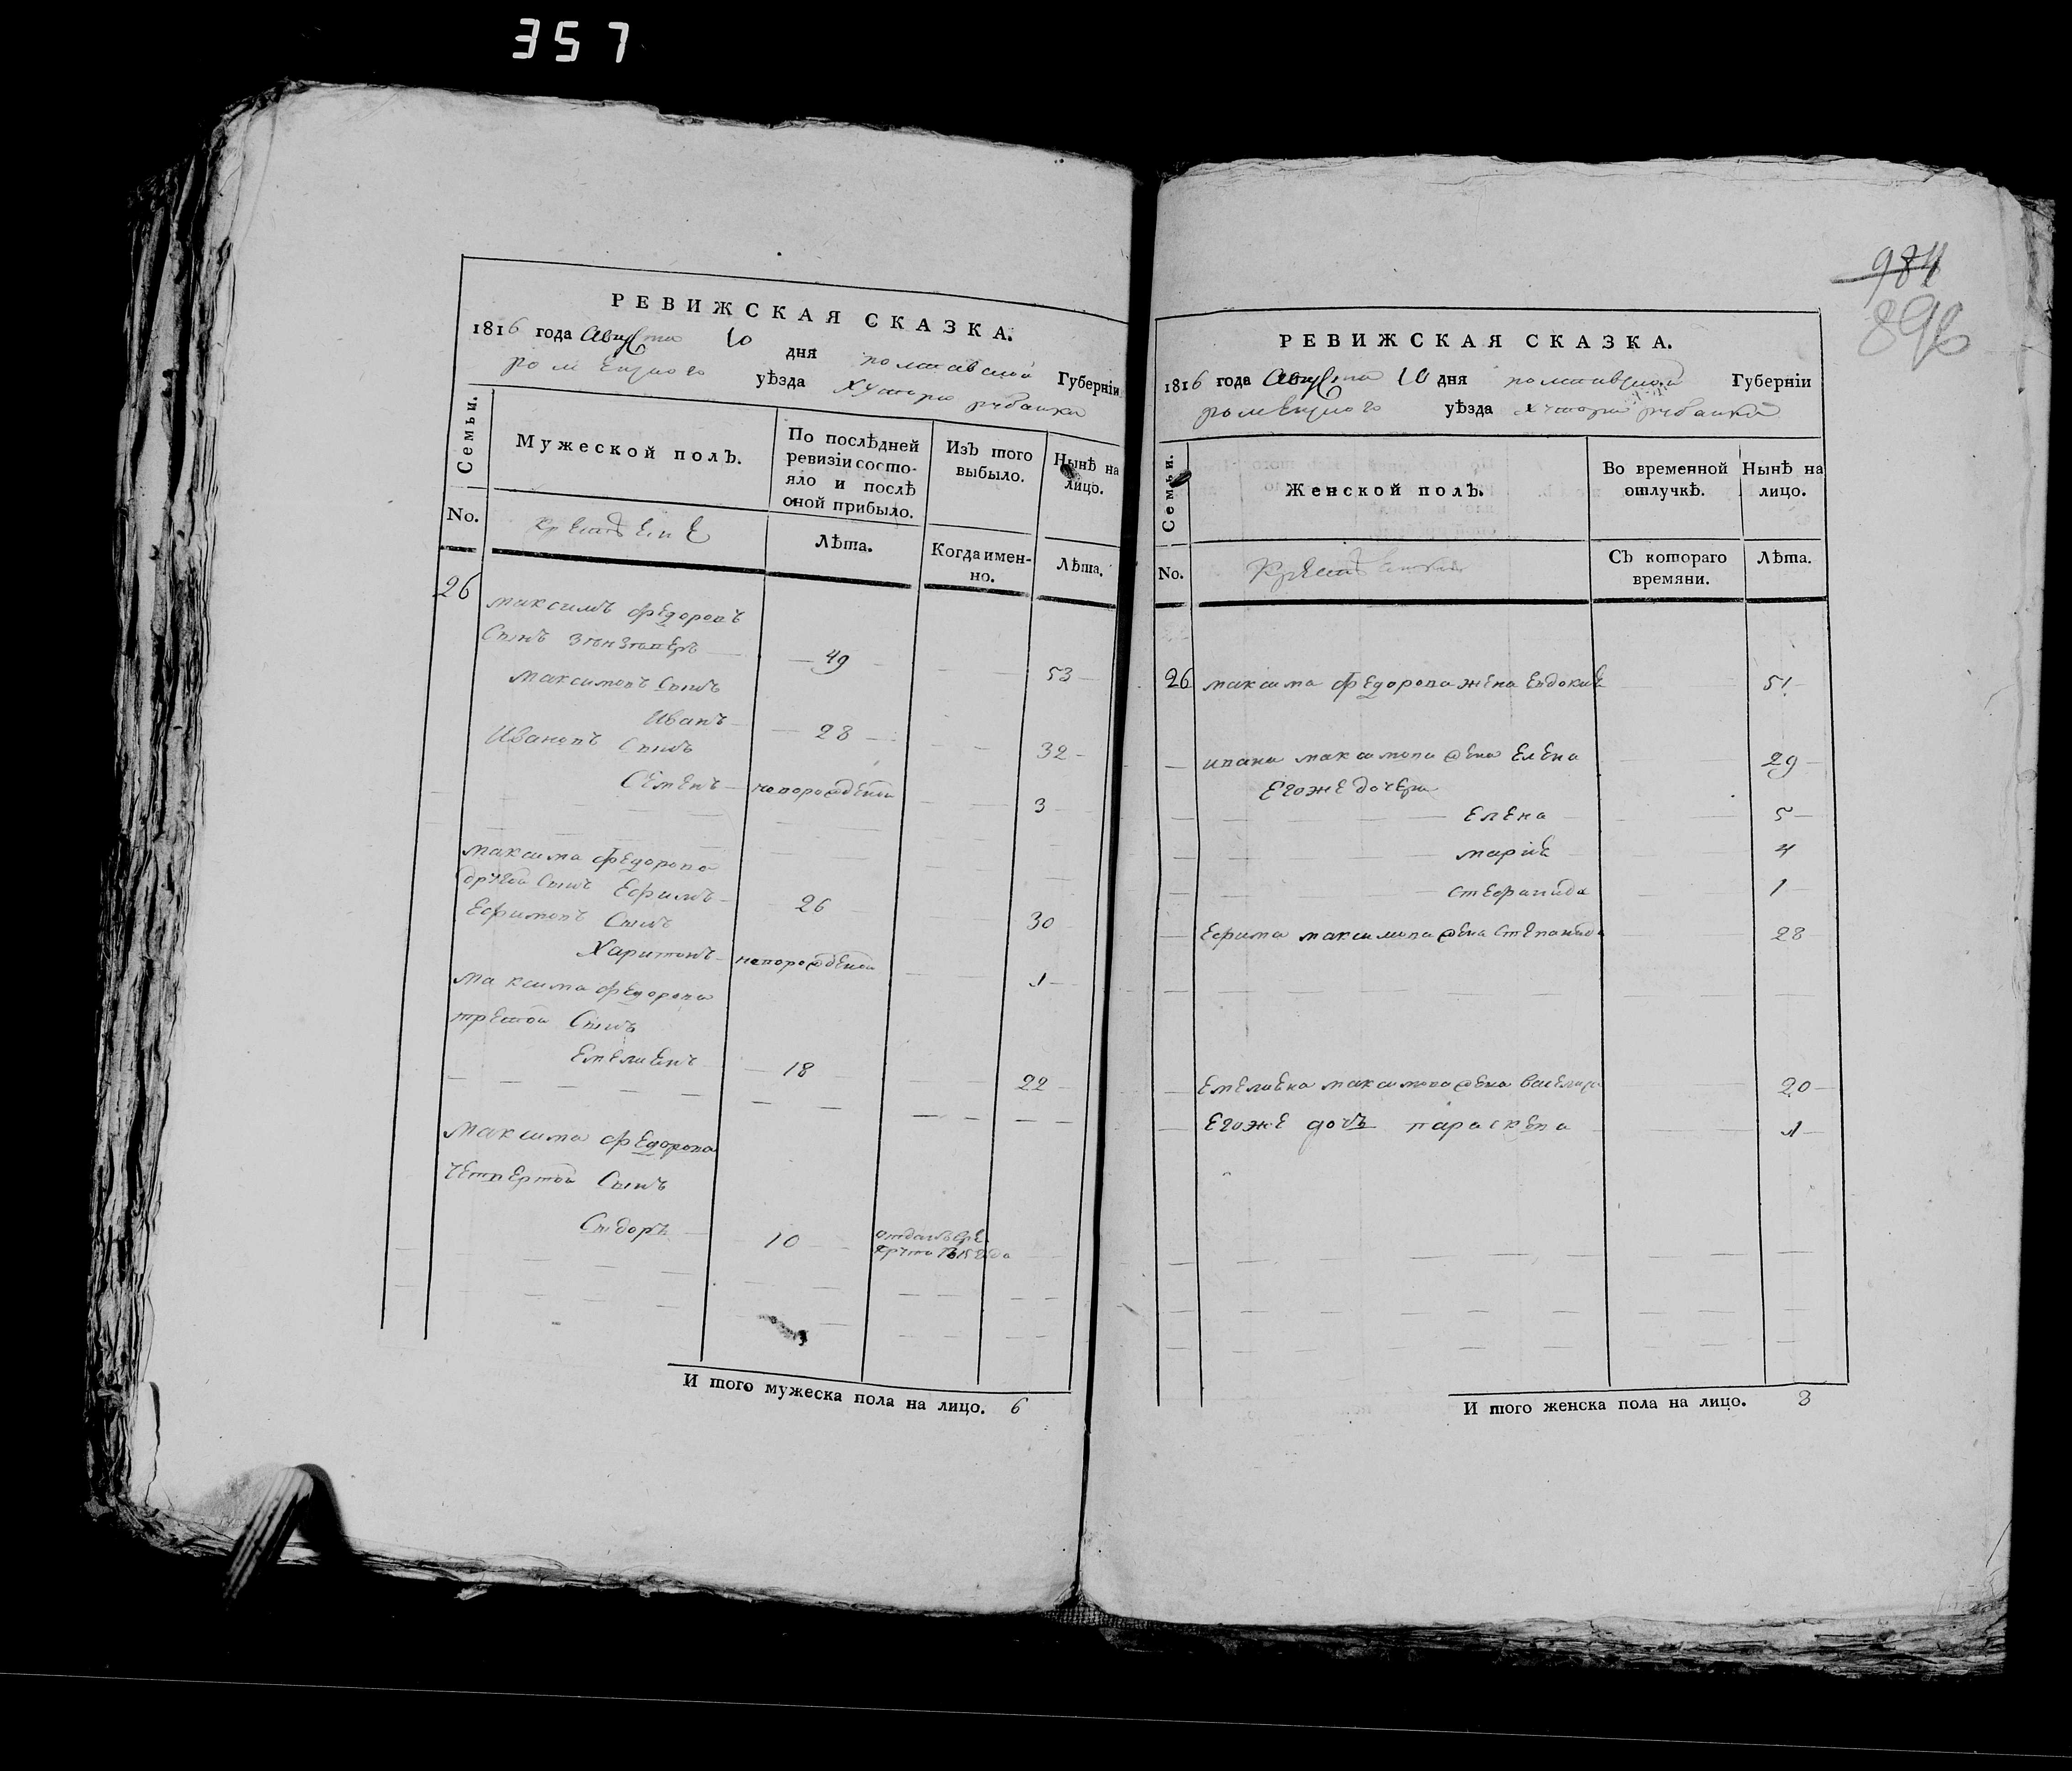 357
РЕВИЖСКАЯ СКАЗКА.
1816 года августа 10 дня полтавской Губерніи
роменцкого уѣзда Хутора рубанки
Семьи.
Мужеской полъ.
По послѣдней ревизіи состо-
яло и послѣ
оной прибыло.
Изъ того
выбыло.
Нынѣ на
лицо.
No.
крестьяне
Лѣта.
Когда имен-
но.
Лѣта.
26
максимъ федоровъ
сынъ 49 53
максимовъ сынъ
Иванъ 28 32
Ивановъ сынъ
Семенъ новорожденой 3
максима федорова
другой сынъ Ефимъ 26 30
Ефимовъ сынъ
Харитонъ новорожденой 1
максима федорова
третой сынъ
Емелиенъ 18 22
максима федорова
четвертой сынъ
Сидоръ 10 отданъ в ре
круты года
И того мужеска пола на лицо. 6
984
896
РЕВИЖСКАЯ СКАЗКА.
1816 года августа 10 дня полтавской Губерніи
роменцкого уѣзда хутора рубанки
Семьи.
Женской полъ.
Во временной
отлучкѣ.
Нынѣ на
лицо.
No.
Съ котораго
времяни.
Лѣта.
26 максима федорова жена Евдокиѣ 51
ивана максимова жена Елена 29
Егоже дочери
Елена 5
мариѣ 4
стефанида 1
Ефима максимова жена степанида 28
Емелиена максимова жена 20
Егоже дочъ параскева 1
И того женска пола на лицо. 8